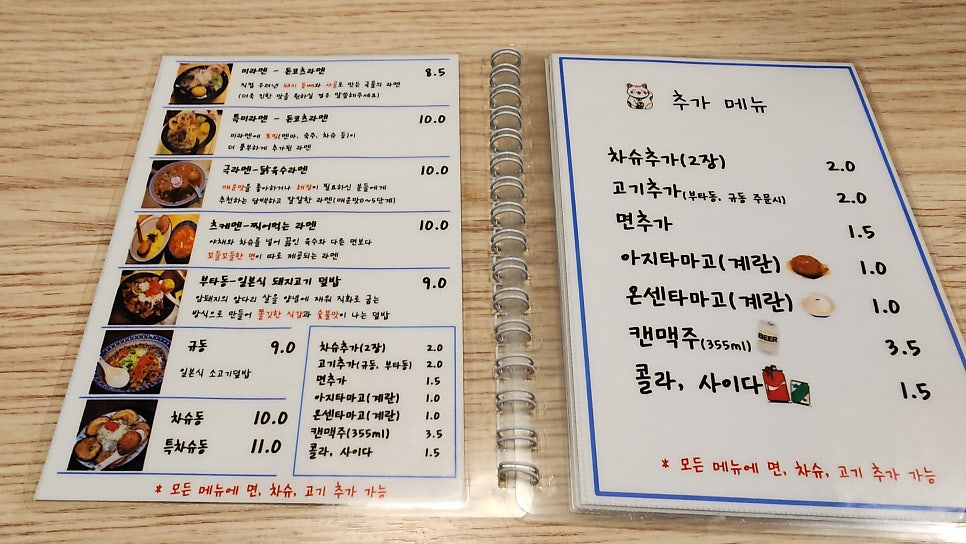 미라멘 - 돈코츠라멘 8.5
직접 우려낸 돼지 등뼈와 사골로 만든 국물의 라멘
(더욱 진한 맛을 원하실 경우 말씀해주세요)
특미라멘 - 돈코츠라멘 10.0
미라멘에 토핑(멘마, 숙주, 차슈 등)이
더 풍부하게 추가된 라멘
극라멘-닭육수라멘 10.0
매운맛을 좋아하거나 해장이 필요하신 분들에게
추천하는 담백하고 칼칼한 라멘(매운맛0~5단계)
츠케멘-찍어먹는 라멘 10.0
야채와 차슈를 넣어 끓인 육수와 다른 면보다
꼬들꼬들한 면이 따로 제공되는 라멘
부타동-일본식 돼지고기 덮밥 9.0
암퇘지의 앞다리 살을 양념에 재워 직화로 굽는
방식으로 만들어 쫄깃한 식감과 숯불맛이 나는 덮밥
규동 9.0
일본식 소고기덮밥
차슈동 10.0
특차슈동 11.0
차슈추가(2장) 2.0
고기추가(규동, 부타동) 2.0
면추가 1.5
아지타마고(계란) 1.0
온센타마고(계란) 1.0
캔맥주(355ml) 3.5
콜라, 사이다 1.5
* 모든 메뉴에 면, 차슈, 고기 추가 가능
추가 메뉴
차슈추가(2장) 2.0
고기추가(부타동, 규동 주문시) 2.0
면추가 1.5
아지타마고(계란) 1.0
온센타마고(계란) 1.0
캔맥주(355ml) BEER 3.5
콜라, 사이다 1.5
* 모든 메뉴에 면, 차슈, 고기 추가 가능